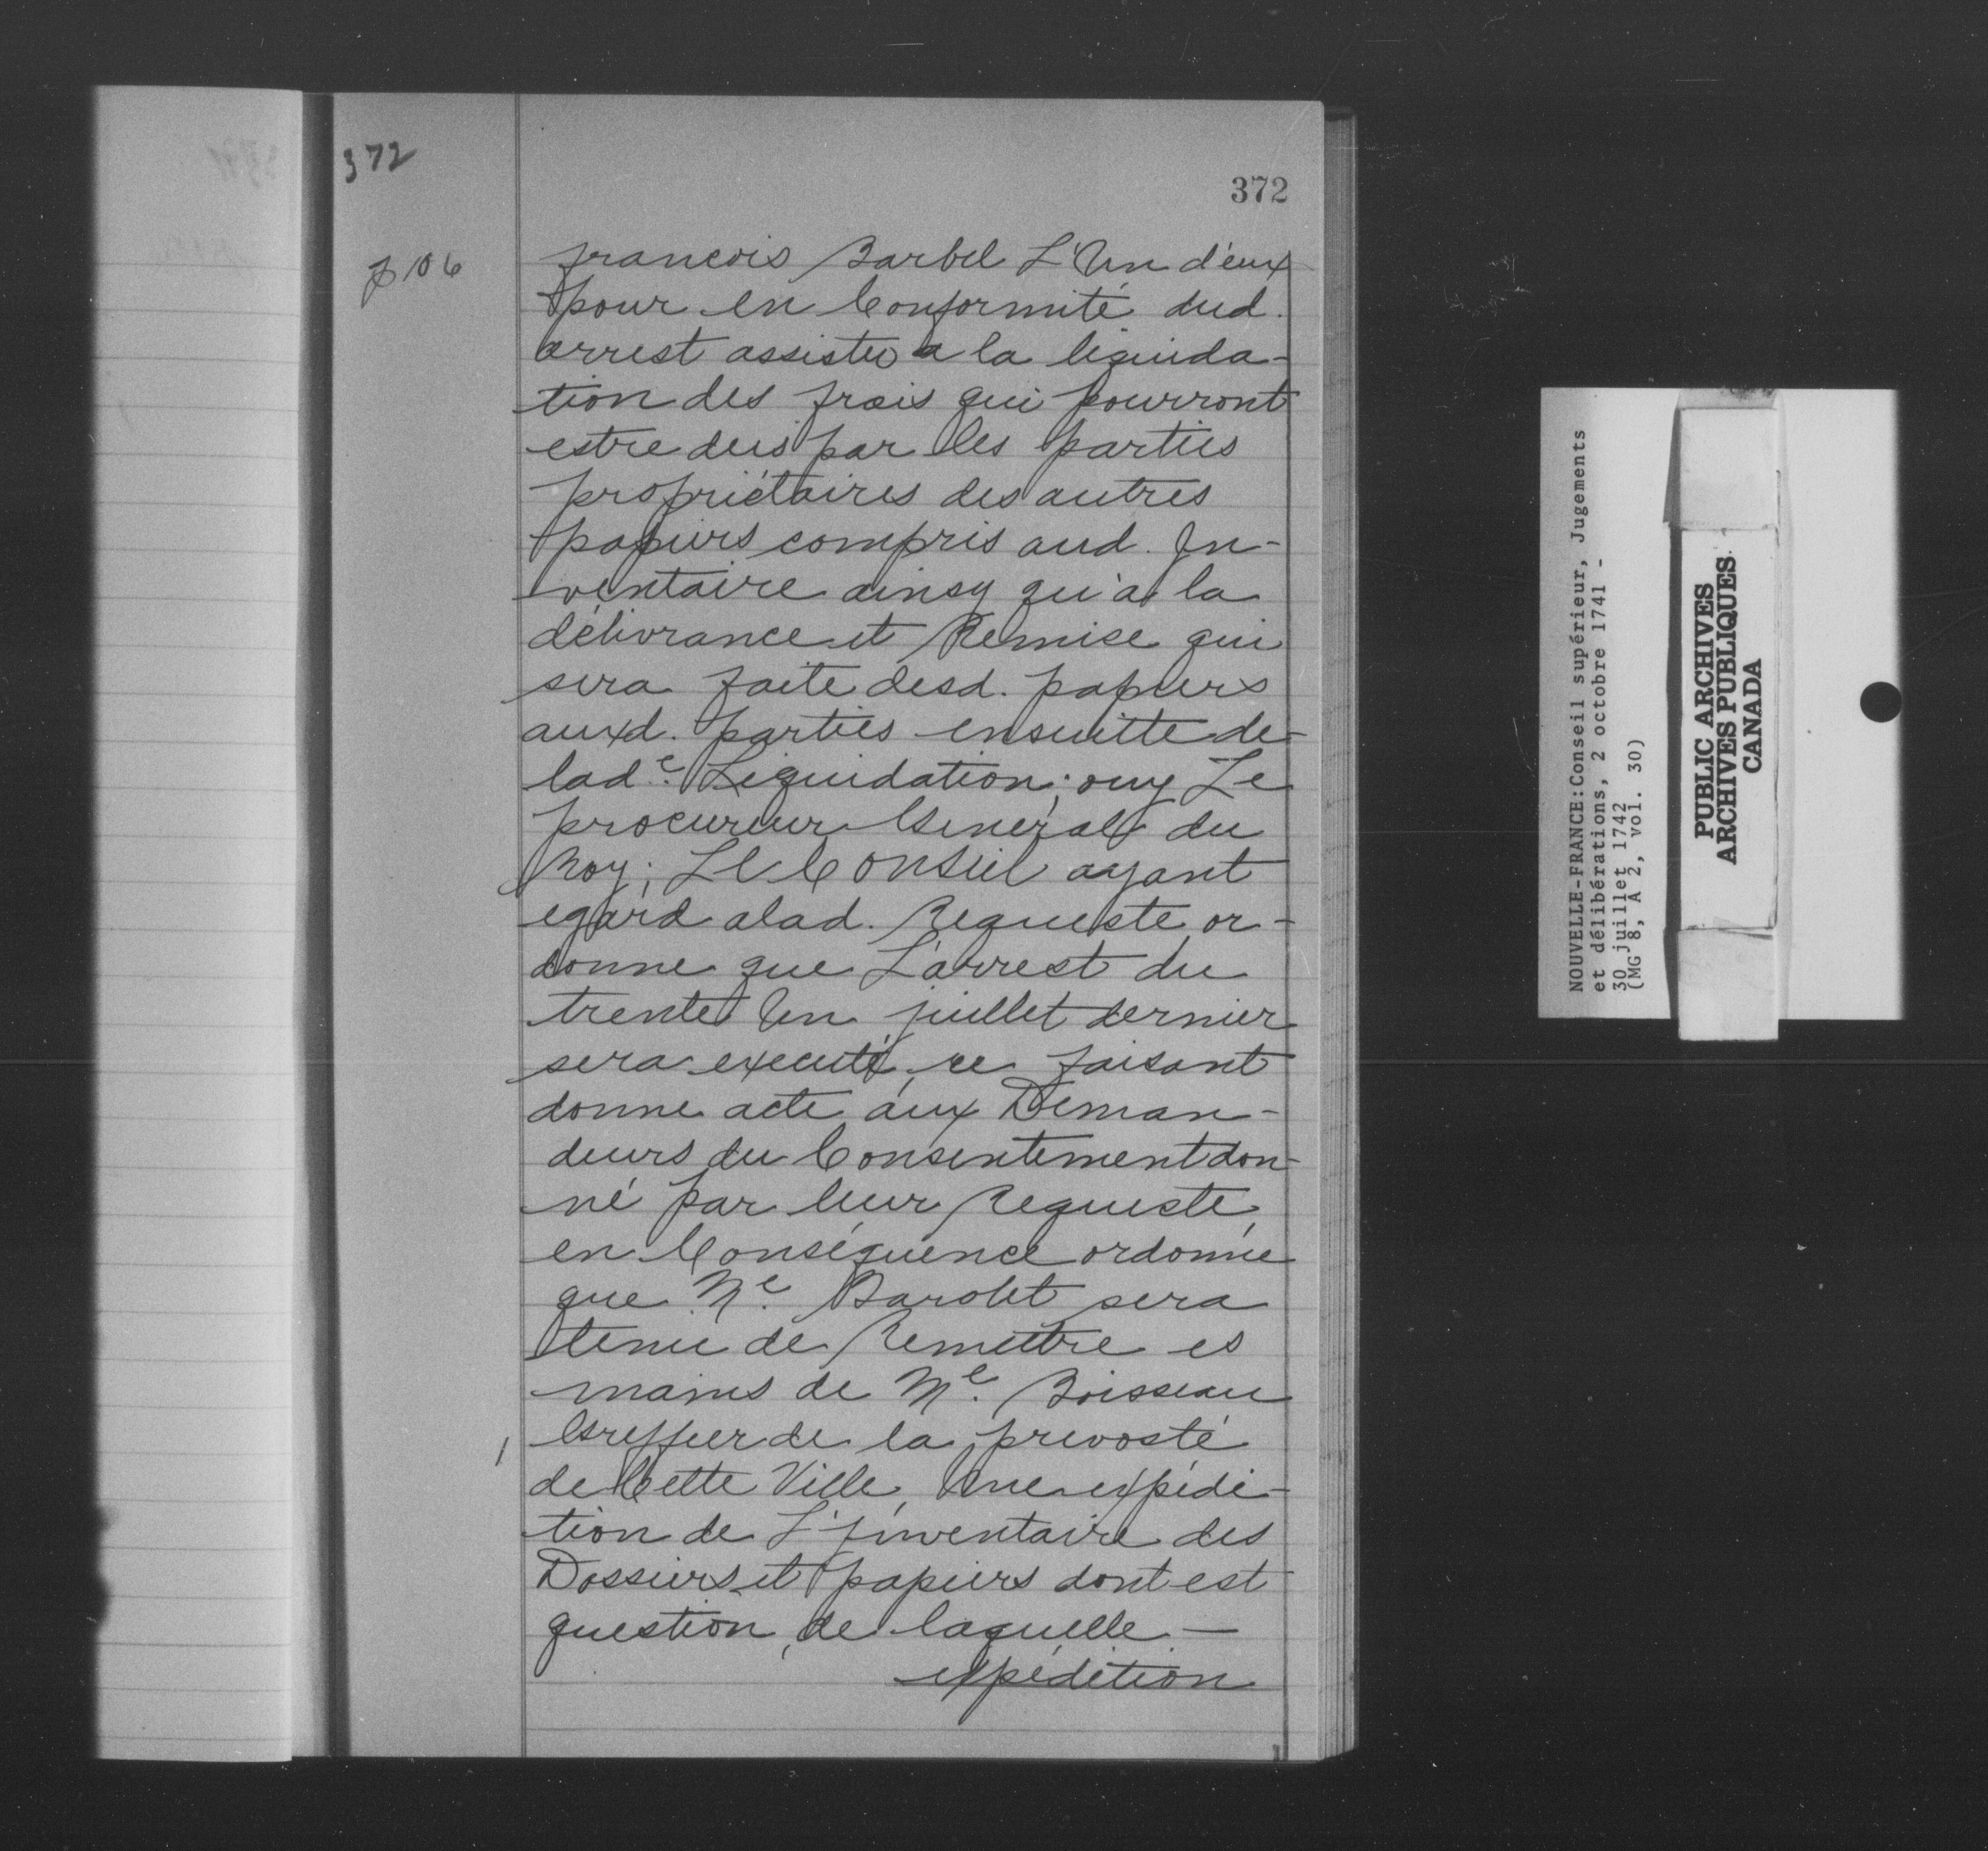 372
372
p 106
francois Barbel L'Un d'eux
pour en Conformité dud.
arrest assister a la liquida-
tion des frais qui pourront
estre deus par les parties
propriétaires des autres
papiers compris aud. In-
ventaire ainsy qu'a la
délivrance et Remise qui
sera faite desd. papiers
auxd. parties ensuitte de
lade. Liquidation; ouy Le
procureur Général du
Roy; Le Conseil ayant
egard alad. Requeste or-
donne que L'arrest du
trente Un juillet dernier
sera executé, ce faisant
donne acte aux Deman-
deurs du Consentement don-
né par leur Requeste,
en Conséquence ordonne
que Me. Barolet sera
tenu de Remettre es
mains de Me. Boisseau
Greffier de la prevosté
de Cette Ville, Une expédi-
tion de L'jnventaire des
Dossiers et papiers dont est
question, de laquelle —
expédition
NOUVELLE-FRANCE:Conseil supérieur, Jugements
et délibérations, 2 octobre 1741 -
30 juillet 1742
(MG 8, A 2, vol. 30)
PUBLIC ARCHIVES
ARCHIVES PUBLIQUES
CANADA